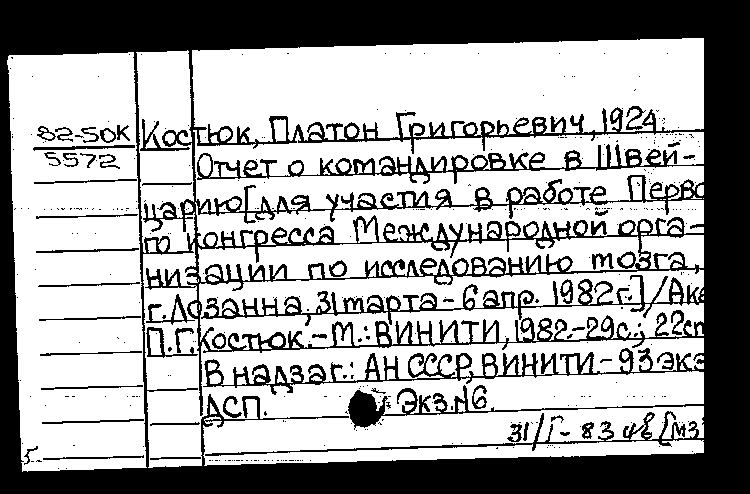 82-50К Костюк, Платон Григорьевич, 1924.
5572 Отчет о командировке в Швей-
царию [для участия в работе Перво
го конгресса Международной орга-
низации по исследованию мозга,
г. Лозанна, 31 марта - 6 апр. 1982 г.] / Ака
П.Г. Костюк. - М.: ВИНИТИ, 1982. - 29 с.; 22 сп
В надзаг.: АН СССР, ВИНИТИ. - 93 экз
ДСП. Экз. №6.
31/I - 83
5.